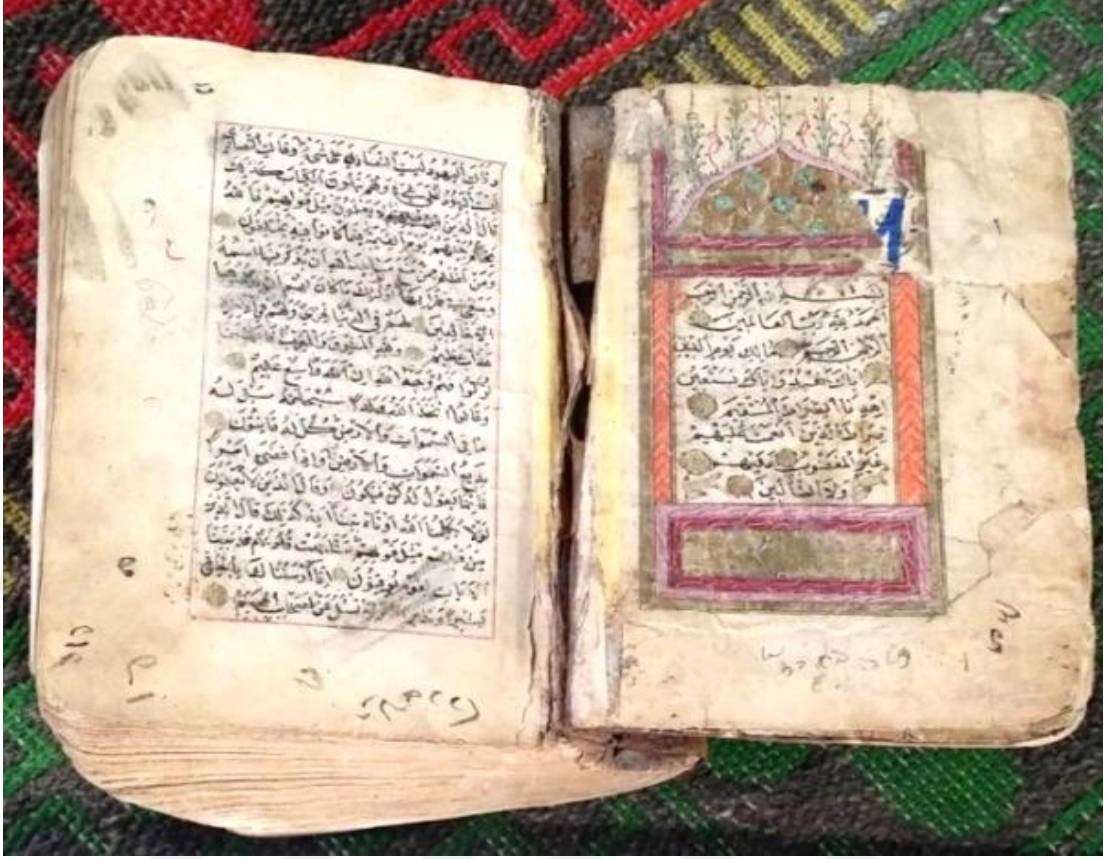 بسم الله الرحمن الرحيم
الحمد لله رب العالمين
الرحمن الرحيم مالك يوم الدين
اياك نعبد واياك نستعين
اهدنا الصراط المستقيم
صراط الذين انعمت عليهم
غير المغضوب عليهم
ولا الضالين
وقالت اليهود ليست النصارى على شيء وقالت النصارى
ليست اليهود على شيء وهم يتلون الكتاب كذلك
قال الذين لا يعلمون مثل قولهم فالله
يحكم بينهم يوم القيمة فيما كانوا فيه يختلفون
ومن اظلم ممن منع مساجد الله ان يذكر فيها اسمه
وسعى في خرابها اولئك ما كان لهم ان يدخلوها
الا خائفين لهم في الدنيا خزي ولهم في الاخرة
عذاب عظيم ولله المشرق والمغرب فاينما
تولوا فثم وجه الله ان الله واسع عليم
وقالوا اتخذ الله ولدا سبحانه بل له
ما في السموات والارض كل له قانتون
بديع السموات والارض واذا قضى امرا
فانما يقول له كن فيكون وقال الذين لا يعلمون
لولا يكلمنا الله او تأتينا آية كذلك قال الذين
من قبلهم مثل قولهم تشابهت قلوبهم قد بينا
الآيات لقوم يوقنون انا ارسلناك بالحق
بشيرا ونذيرا ولا تسئل عن اصحاب الجحيم